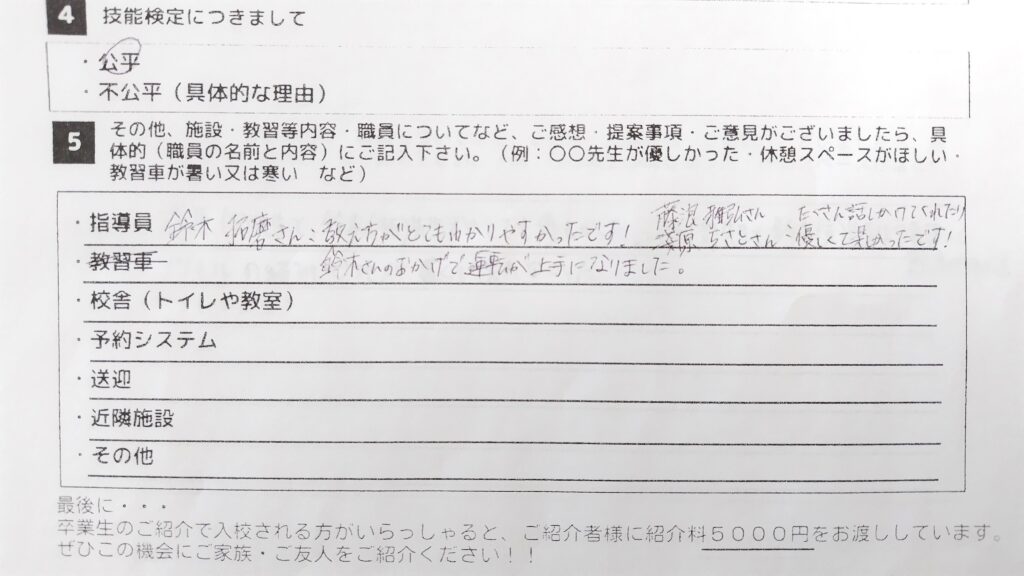 4 技能検定につきまして
・公平
・不公平（具体的な理由）
5 その他、施設・教習等内容・職員についてなど、ご感想・提案事項・ご意見がございましたら、具
体的（職員の名前と内容）にご記入下さい。（例：〇〇先生が優しかった・休憩スペースがほしい・
教習車が暑い又は寒い　など）
・指導員 鈴木 拓磨さん：教え方がとてもわかりやすかったです！
藤沢 雅弘さん：たくさん話しかけてくれたり
原 ちさとさん：優しくて楽しかったです！
・教習車 鈴木さんのおかげで運転が上手になりました。
・校舎（トイレや教室）
・予約システム
・送迎
・近隣施設
・その他
最後に・・・
卒業生のご紹介で入校される方がいらっしゃると、ご紹介者様に紹介料５０００円をお渡ししています。
ぜひこの機会にご家族・ご友人をご紹介ください！！